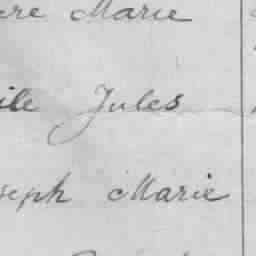 ere Marie
ile Jules
seph Marie